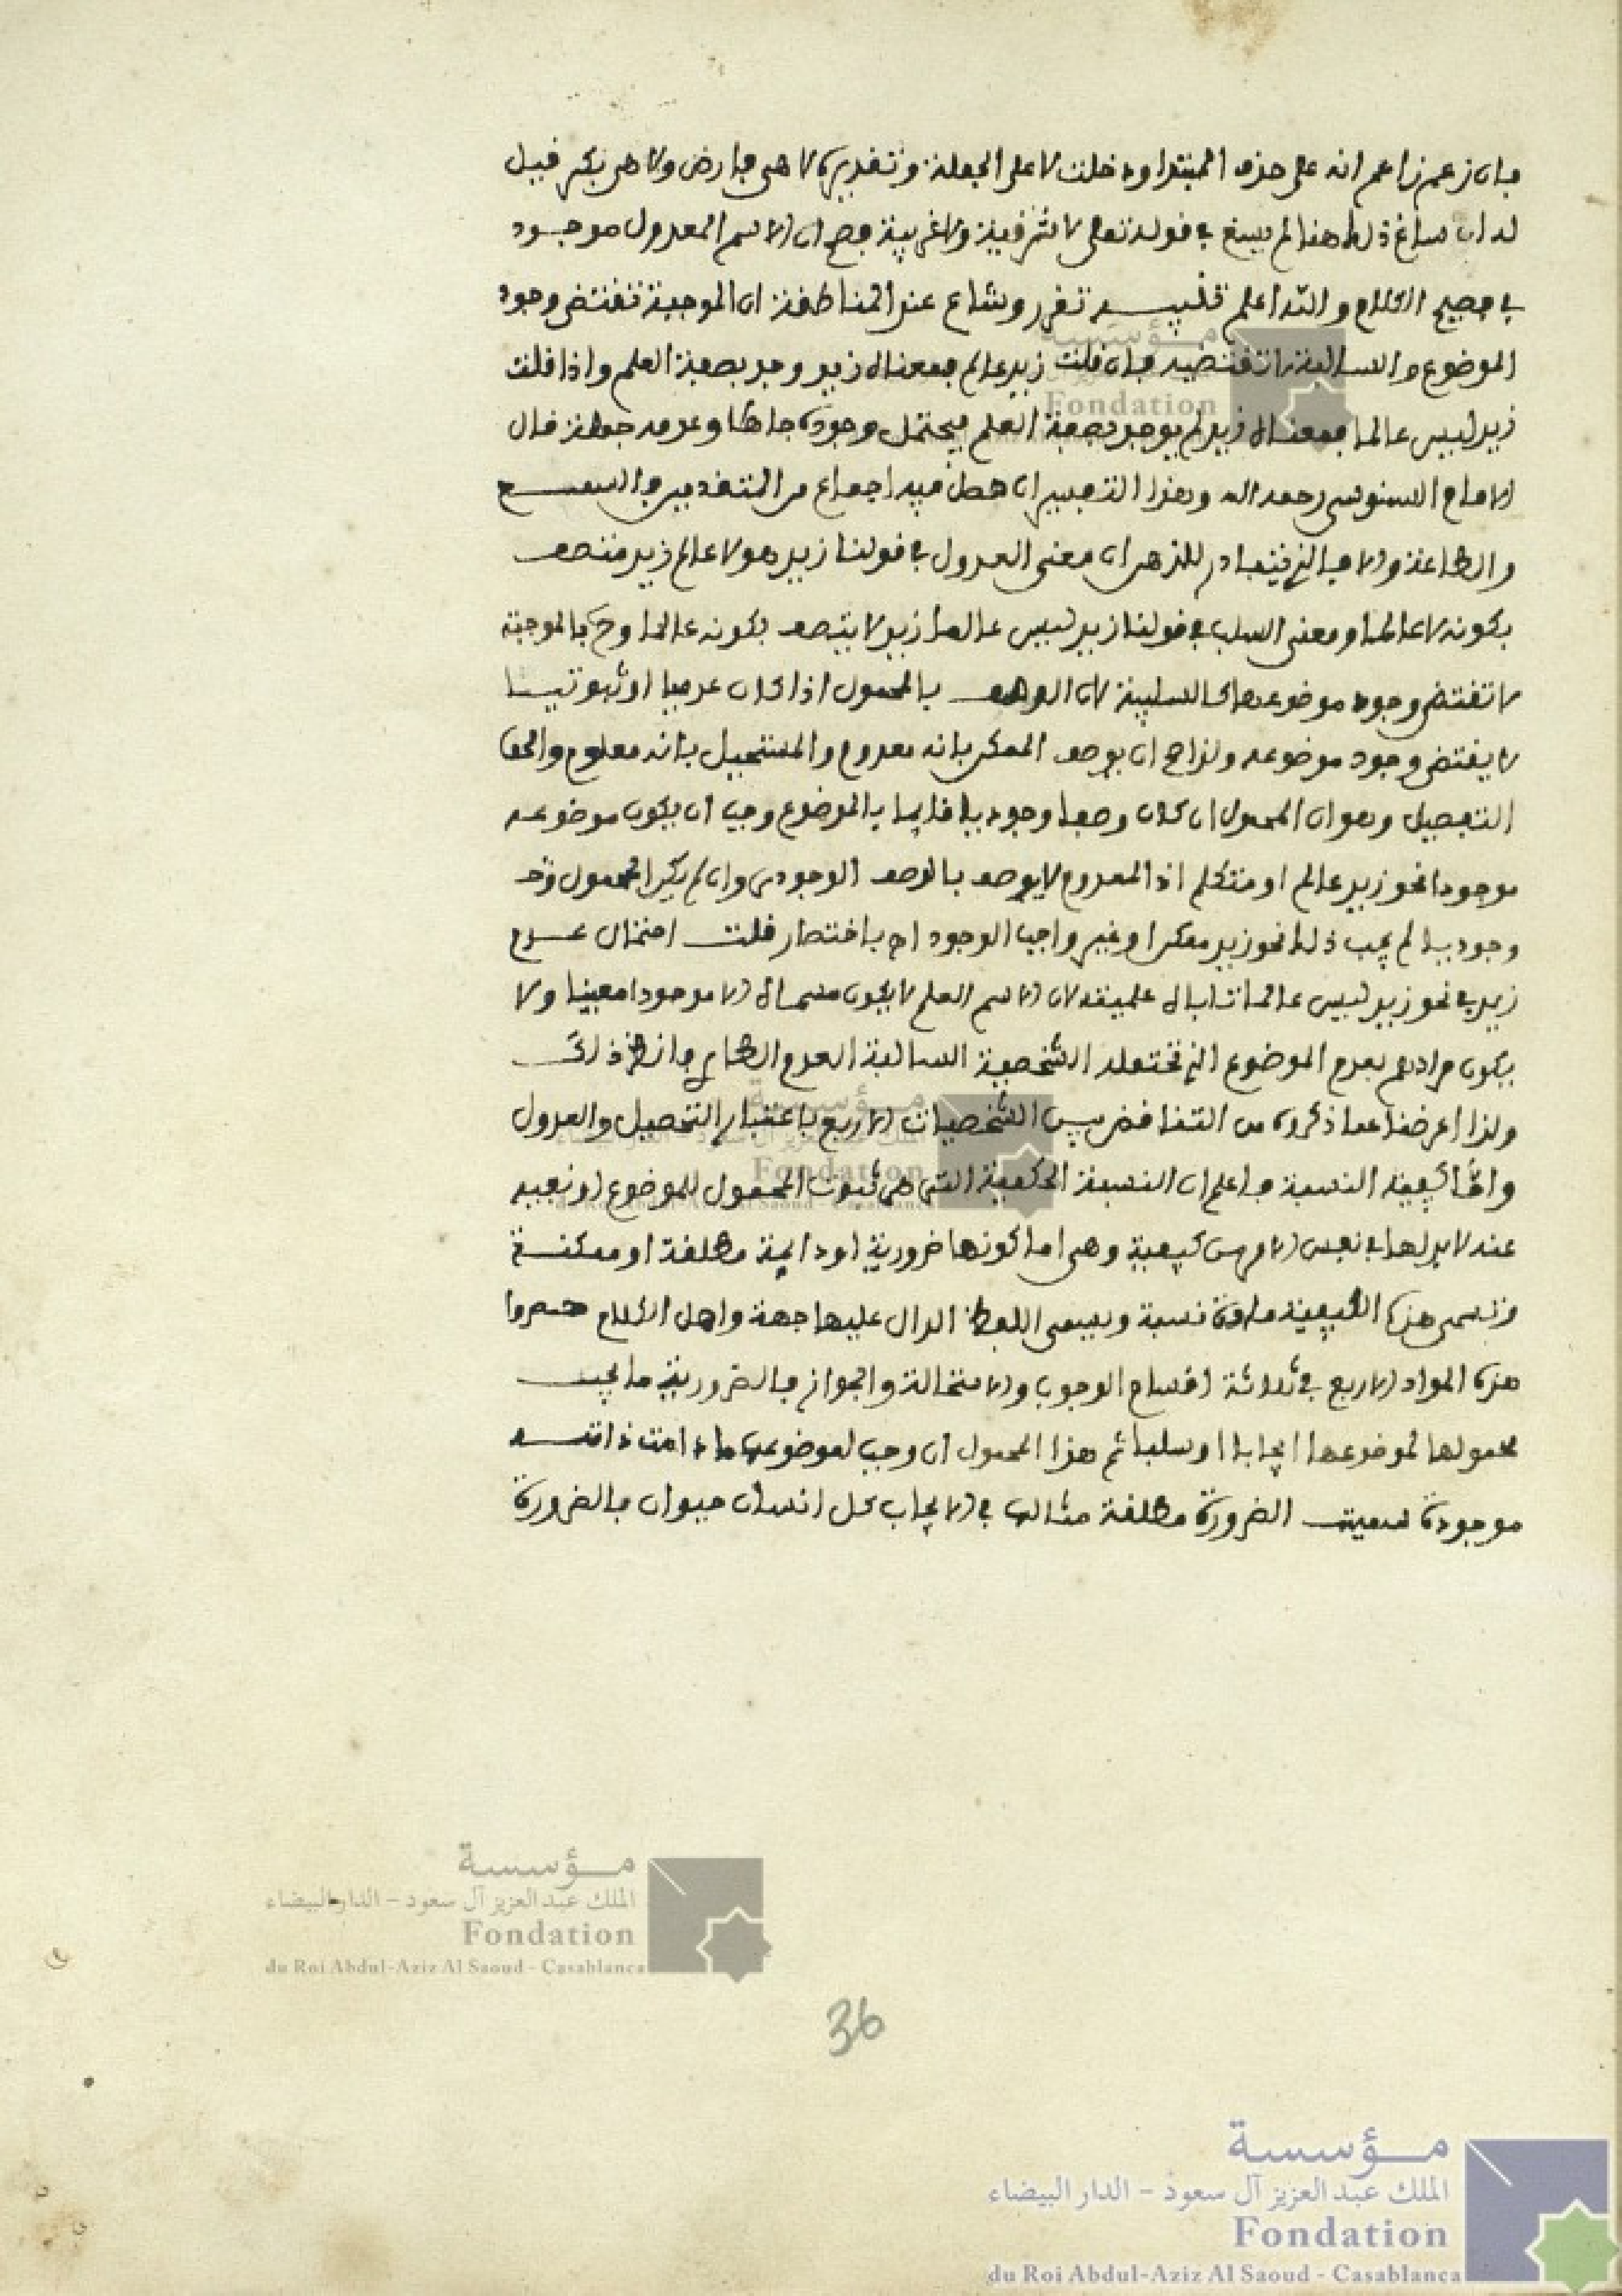 فإن زعم زاعم انه على حذف المبتدا ودخلت لا على الجملة وتقديره لا هي فارض ولا هي بكر قيل
له ان ساغ ذلك هنا لم يسغ في قوله تعلى لا شرقية ولا غربية فصح ان الاسم المعدول موجود
في فصيح الكلام والله اعلم تنبيه تقرر وشاع عند المناطقة ان الموجبة تقتضي وجود
الموضوع والسالبة لا تقتضيه فإن قلت زيد عالم فمعناه زيد وجد بصفة العلم واذا قلت
زيد ليس عالما فمعناه زيد لم يوجد بصفة العلم فيحتمل وجوده جاهلا وعدمه جملة قال
الامام السنوسي رحمه الله وهذا التعبير ان حصل فيه اجماع من المتقدمين فالسمع
والطاعة والا فالذي يتبادر للذهن ان معنى العدول في قولنا زيد هو لا عالم زيد متصف
بكونه لا عالما ومعنى السلب في قولنا زيد ليس عالما زيد لا يتصف بكونه عالما وح فالموجبة
لا تقتضي وجود موضوعها كالسلبية لان الوصف بالمحمول اذا كان عدميا او ثبوتيا
لا يقتضي وجود موضوعه ولذا صح ان يوصف الممكن بانه معدوم والمستحيل بانه معلوم والحق
التفصيل وهو ان المحمول ان كان وصفا وجوديا قايما بالموضوع وجب ان يكون موضوعه
موجودا نحو زيد عالم او متكلم اذ المعدوم لا يوصف بالوصف الوجودي وان لم يكن المحمول
وجوديا لم يجب ذلك نحو زيد ممكن او غير واجب الوجود اه باختصار قلت احتمال عدم
زيد في نحو زيد ليس عالما تاباه علميته لان الاسم العلم لا يكون مسماه الا موجودا معينا ولا
يكون مرادهم بعدم الموضوع الذي تحتمله الشخصية السالبة العدم الطاري فانظر ذلك
ولذا اعرضنا عما ذكروه من التناقض بين الشخصيات الاربع باعتبار التحصيل والعدول
واما كيفية النسبة فاعلم ان النسبة الحكمية التي هي ثبوت المحمول للموضوع او نفيه
عنه لا بد لها في نفس الامر من كيفية وهي اما كونها ضرورية او دايمة مطلقة او ممكنة
وتسمى هذه الكيفية مادة نسبة ويسمى اللفظ الدال عليها جهة واهل الكلام حصروا
هذه المواد الاربع في ثلاثة اقسام الوجوب والاستحالة والجواز فالضرورية ما يجب
محمولها لموضوعها ايجابا او سلبا ثم هذا المحمول ان وجب لموضوعها ما دامت ذاته
موجودة سميت الضرورة مطلقة مثالها في الايجاب كل انسان حيوان بالضرورة
مؤسسة
الملك عبد العزيز آل سعود - الدار البيضاء
Fondation
du Roi Abdul-Aziz Al Saoud - Casablanca
36
مؤسسة
الملك عبد العزيز آل سعود - الدار البيضاء
Fondation
du Roi Abdul-Aziz Al Saoud - Casablanca